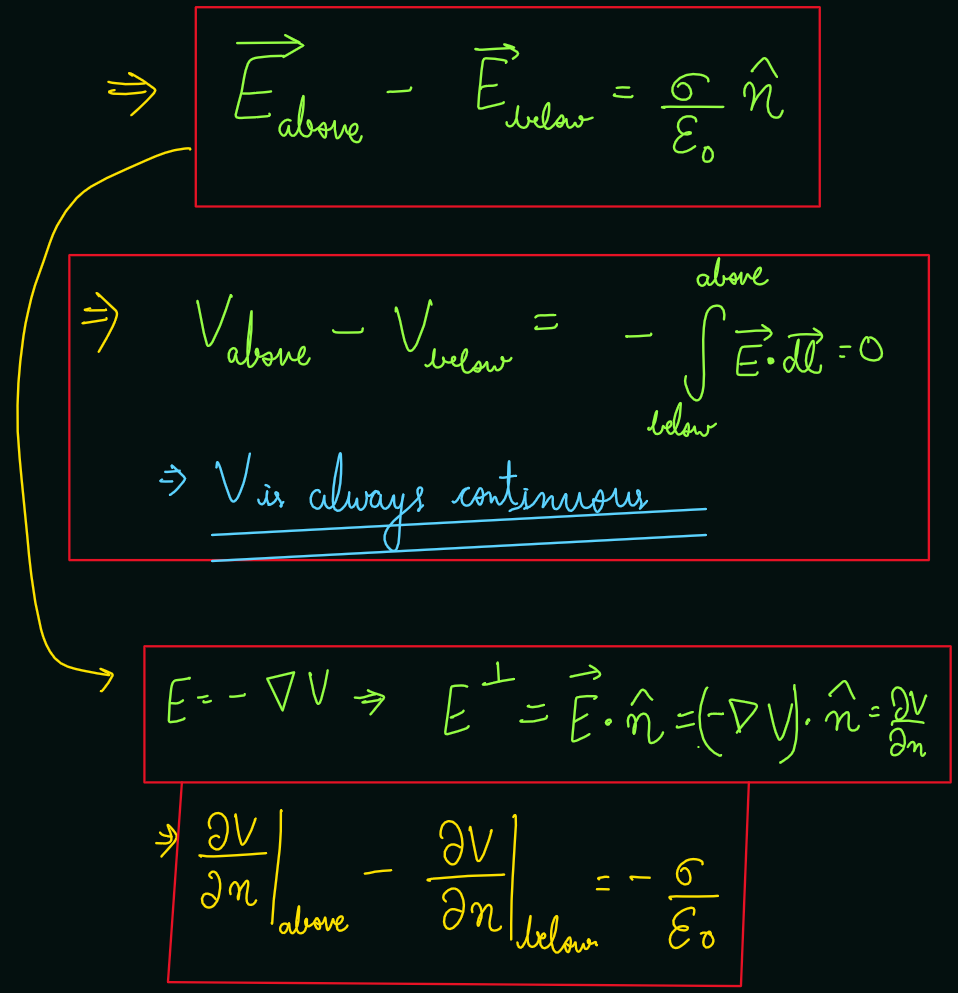 ⇒ E⃗_above − E⃗_below = σ/ε₀ n̂
⇒ V_above − V_below = − ∫_below^above E⃗ · dl⃗ = 0
⇒ V is always continuous
E = − ∇V ⇒ E^⊥ = E⃗ · n̂ = (−∇V) · n̂ = ∂V/∂n
⇒ ∂V/∂n |_above − ∂V/∂n |_below = − σ/ε₀